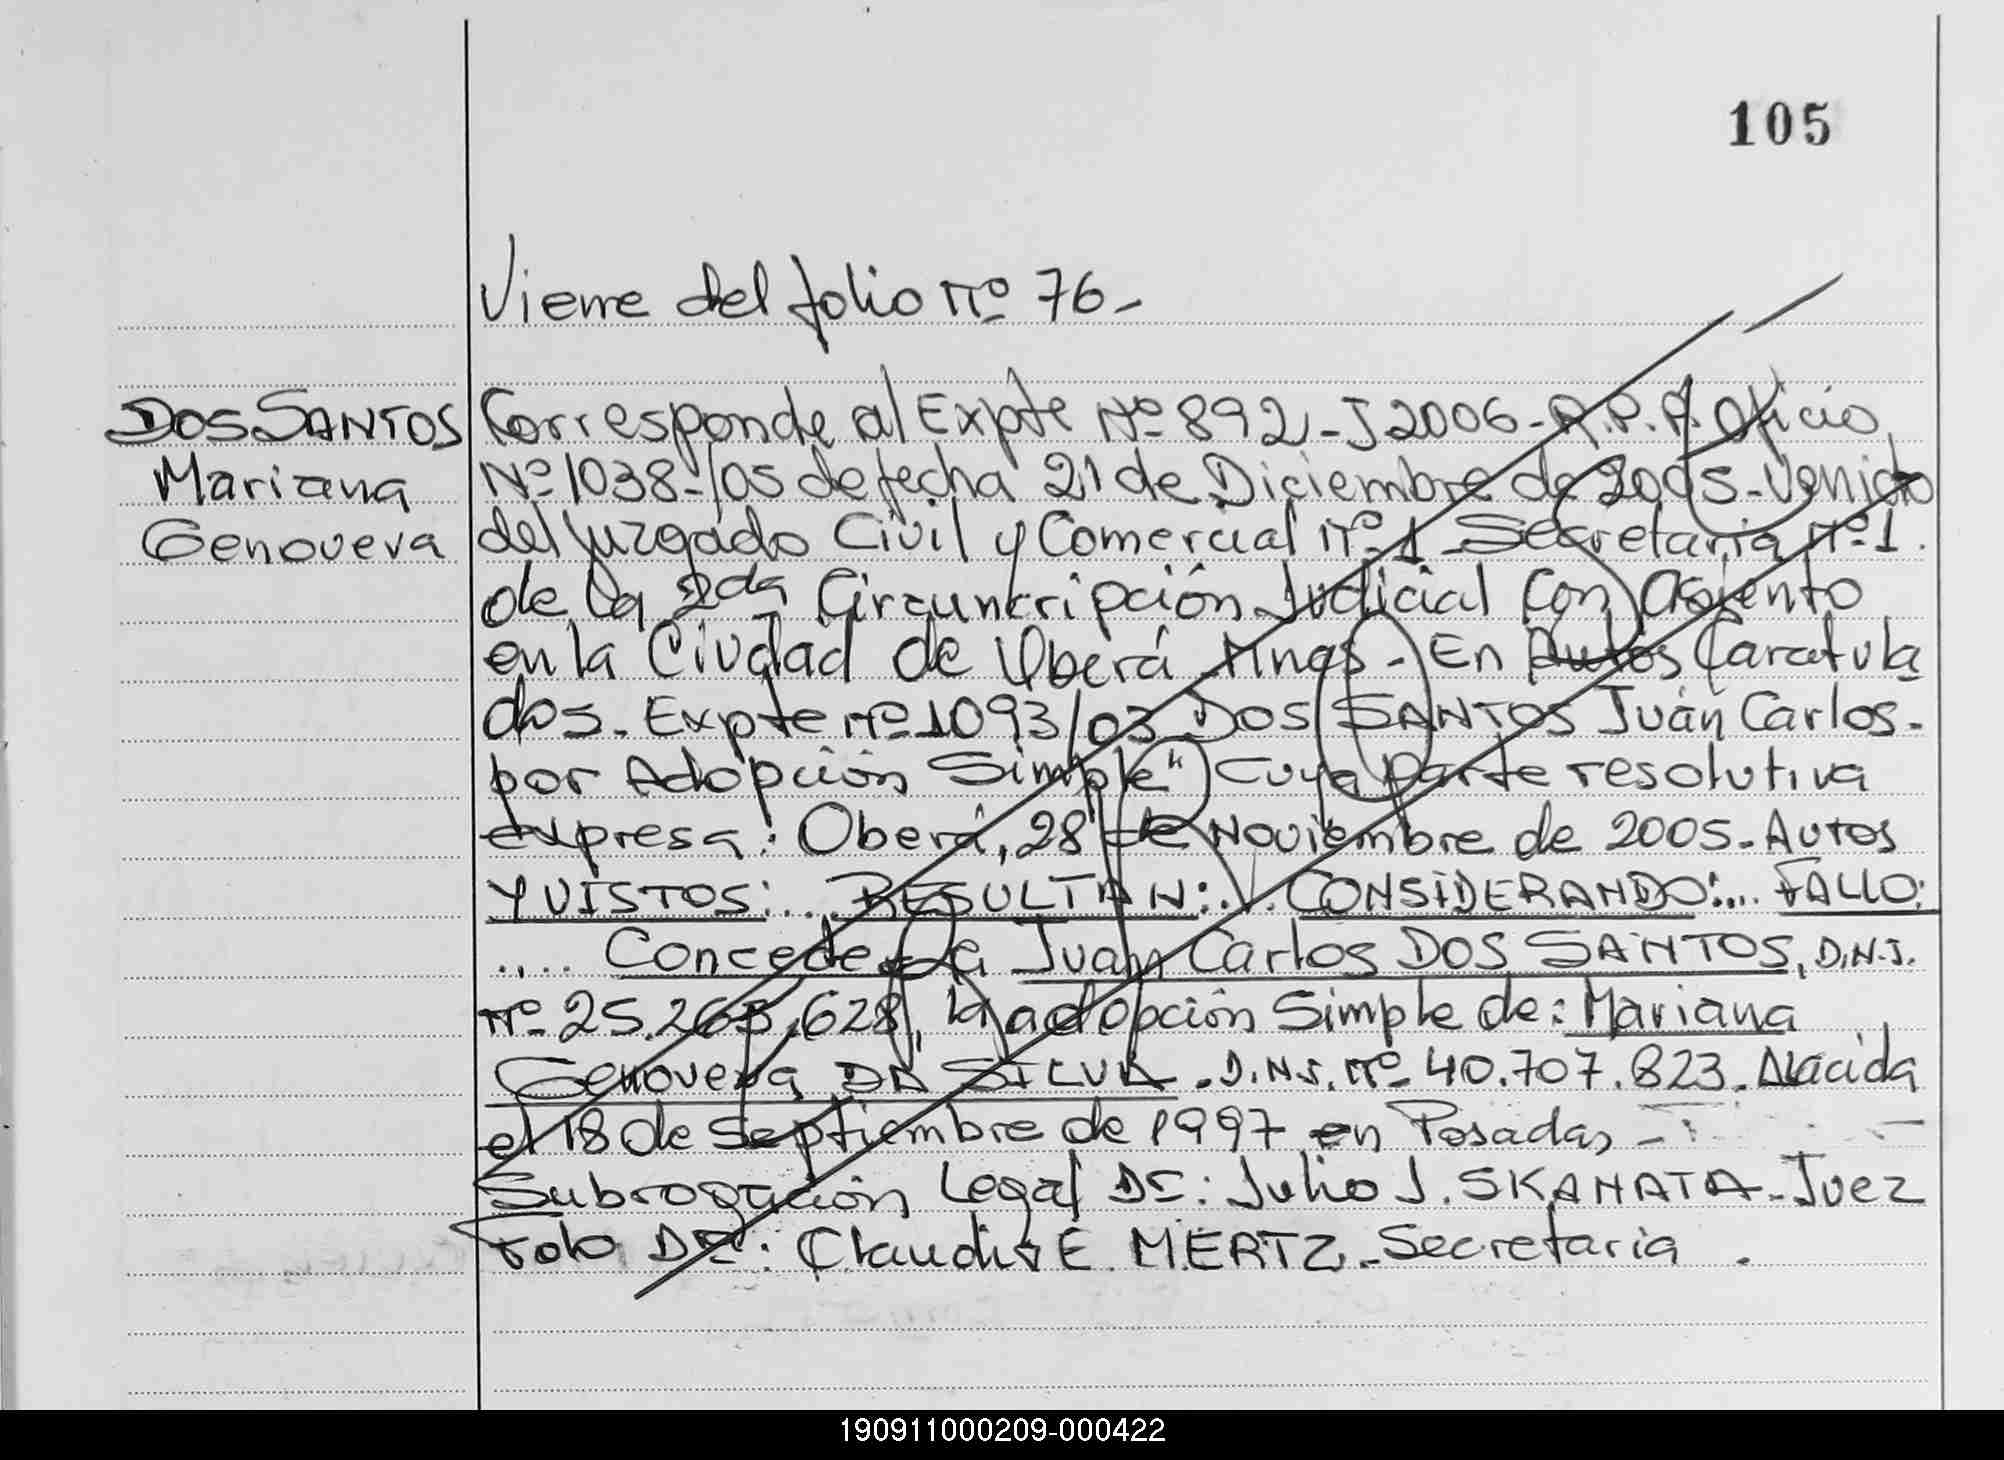 105
Viene del folio nº 76-
DOS SANTOS
Mariana
Genoveva
Corresponde al Expte Nº 892-J2006-R.P.P. Oficio
Nº 1038-/05 de fecha 21 de Diciembre de 2005- Venido
del Juzgado Civil y Comercial nº 1 Secretaria nº 1.
de la 2da Circunscripción Judicial Con asiento
en la Ciudad de Oberá Mnes- En Autos Caratula
dos- Expte nº 1093/03 DOS SANTOS Juan Carlos-
por Adopción Simple" Cuya parte resolutiva
expresa: Oberá, 28 de Noviembre de 2005- Autos
Y VISTOS:... RESULTAN:... CONSIDERANDO:... FALLO:
.... Conceder a Juan Carlos DOS SANTOS, D.N.I.
nº 25.265.628, la adopción Simple de: Mariana
Genoveva DA SILVA - D.N.I. nº 40.707.823. Nacida
el 18 de Septiembre de 1997 en Posadas -
Subrogación Legal Dr: Julio J. SKANATA- Juez
Fdo Dr: Claudia E. MERTZ- Secretaria.
190911000209-000422